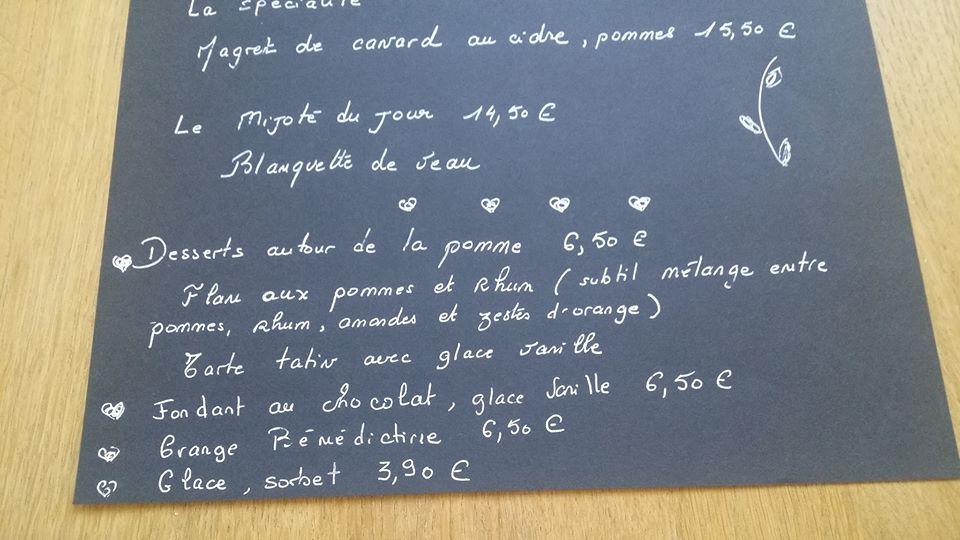 La spécialité
Magret de canard au cidre, pommes 15,50 €
Le Mijoté du jour 14,50 €
Blanquette de veau
Desserts autour de la pomme 6,50 €
Flan aux pommes et Rhum (subtil mélange entre
pommes, Rhum, amandes et zestes d'orange)
Tarte tatin avec glace vanille
Fondant au chocolat, glace vanille 6,50 €
Orange Bénédictine 6,50 €
Glace, sorbet 3,90 €